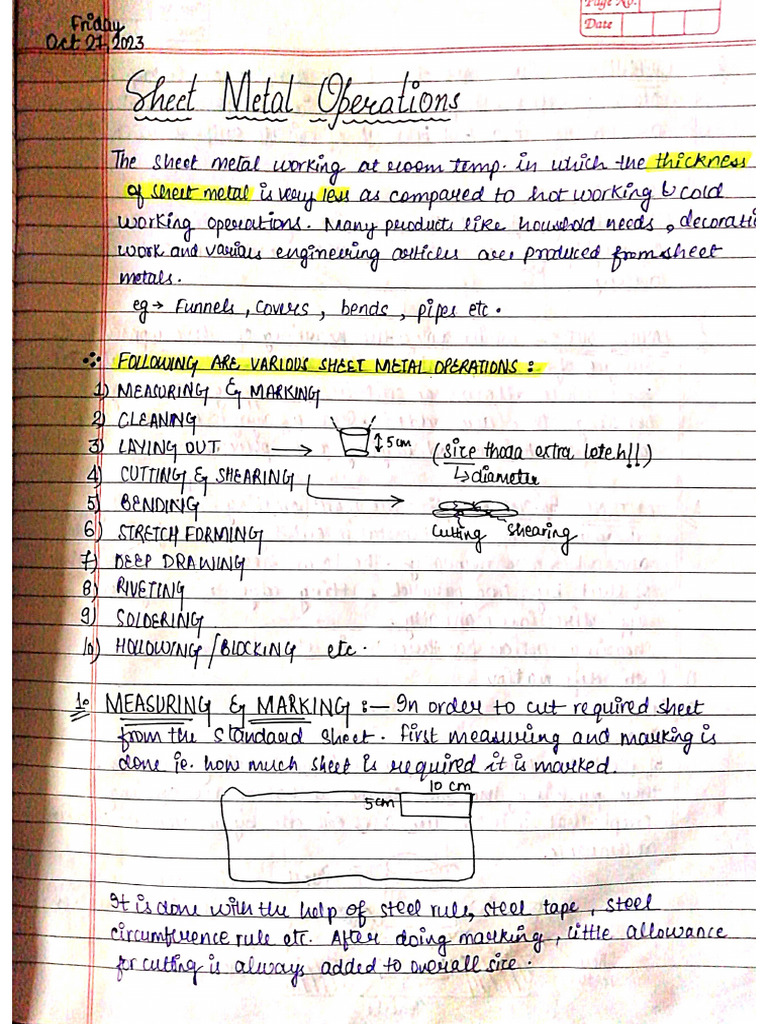 Page No.
Date
Friday
Oct 27, 2023
Sheet Metal Operations
The sheet metal working at room temp. in which the thickness
of sheet metal is very less as compared to hot working & cold
working operations. Many products like household needs, decorati
work and various engineering articles are produced from sheet
metals.
eg → Funnels, covers, bends, pipes etc.
FOLLOWING ARE VARIOUS SHEET METAL OPERATIONS:
1) MEASURING & MARKING
2) CLEANING
3) LAYING OUT → 5 cm (size thoda extra lete h!!)
↳ diameter
4) CUTTING & SHEARING →
5) BENDING
cutting shearing
6) STRETCH FORMING
7) DEEP DRAWING
8) RIVETING
9) SOLDERING
10) HOLLOWING / BLOCKING etc.
1. MEASURING & MARKING :- In order to cut required sheet
from the standard sheet. First measuring and marking is
done ie. how much sheet is required it is marked.
10 cm
5cm
It is done with the help of steel rule, steel tape, steel
circumference rule etc. After doing marking, little allowance
for cutting is always added to overall size.